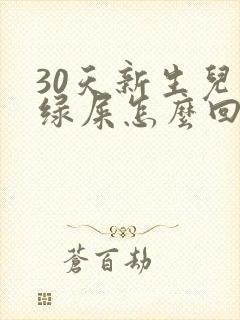 30天新生兒
绿屎怎麼回
蒼百劫